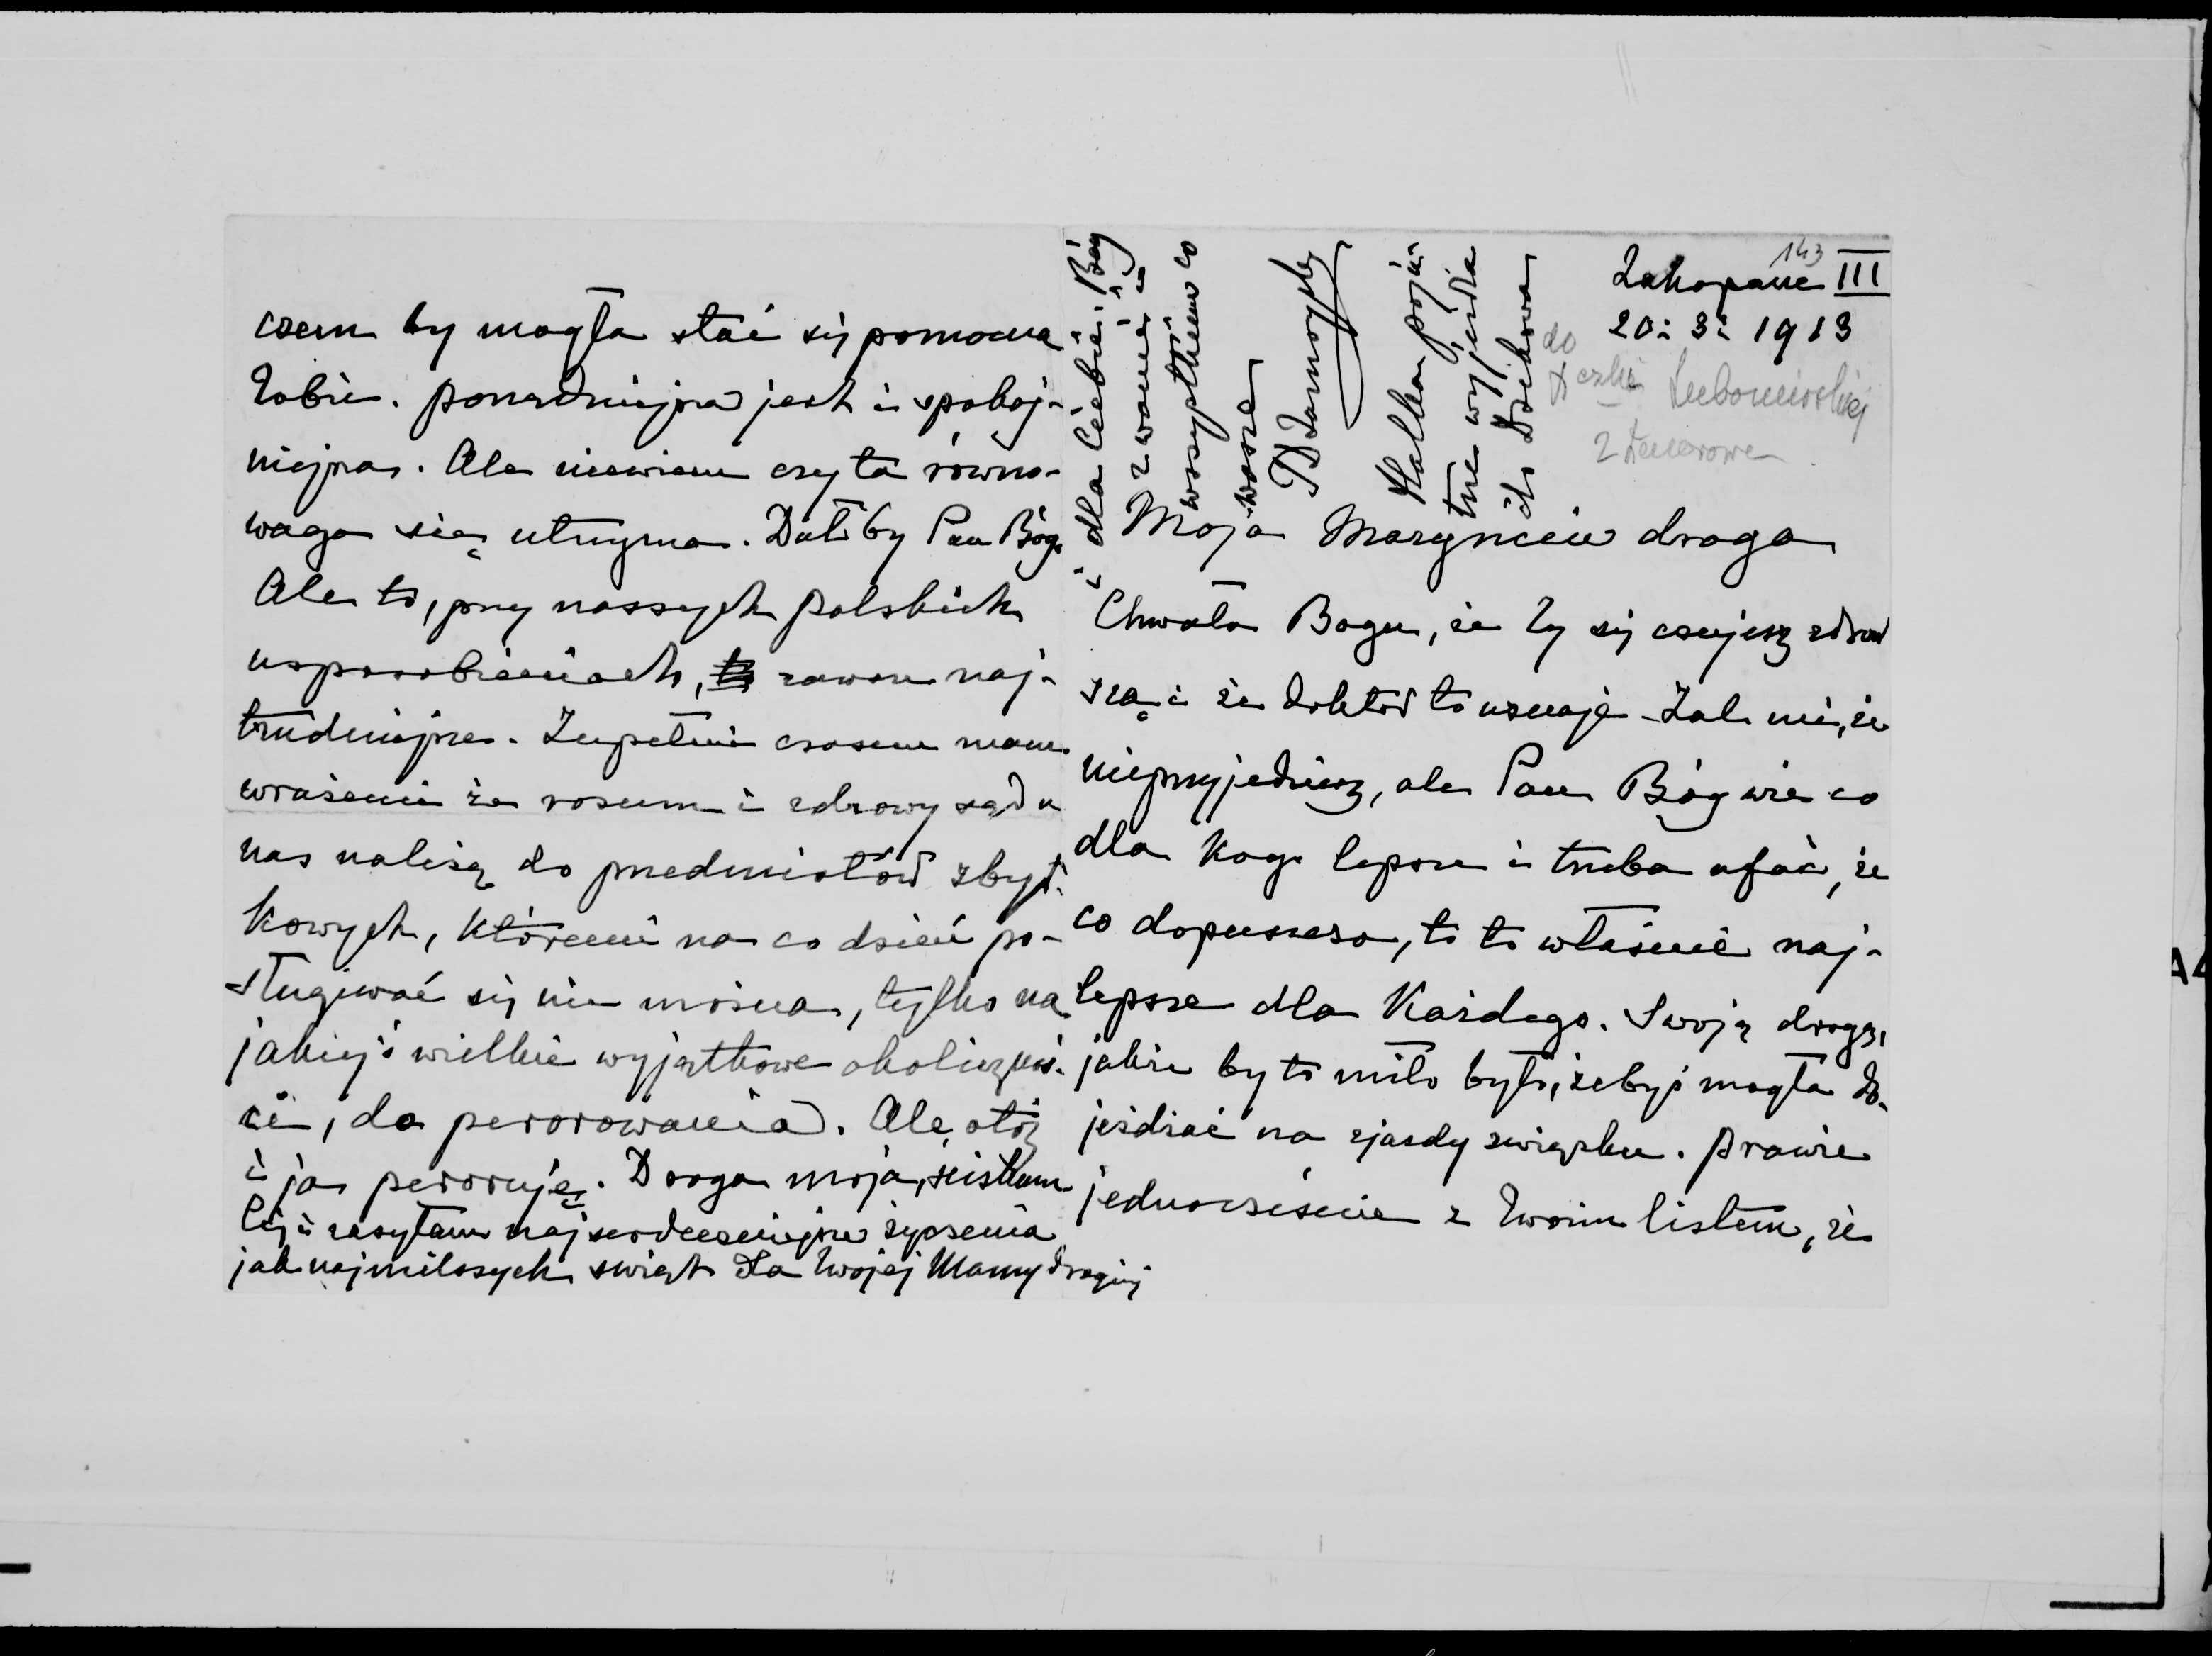 143
Zakopane III
20: 3: 1913
do
X czki Lubomirskiej
z
Moja Maryniu droga
Chwała Bogu, że Ty się czujesz zdrow
szą i że doktor to uznaje. Żal mi, że
nieprzyjedziesz, ale Pan Bóg wie co
dla kogo lepsze i trzeba ufać, że
co dopuszcza, to to właśnie naj-
lepsze dla Każdego. Swoją drogą,
jakże by to miło było, żebyś mogła do-
jeżdżać na zjazdy związku. Prawie
jednocześnie z Twoim listem, że
czem by mogła stać się pomocna
Tobie. Poważniejsza jest i spokoj-
niejsza. Ale niewiem czy ta równo-
waga się utrzyma. Dałby Pan Bóg.
Ale to, przy naszych polskich
usposobieniach, zawsze naj-
trudniejsze. Zupełnie czasem mam
wrażenie że rozum i zdrowy sąd u
nas należą do przedmiotów zbyt-
kowych, któremi na co dzień po-
sługiwać się nie można, tylko na
jakiejś wielkie wyjątkowe okolicznoś-
ci, do perorowania. Ale otóż
i ja peroruję. Droga moja, ściskam
Cię i zasyłam najserdeczniejsze życzenia
jak najmilszych świąt dla Twojej Mamy drogiej
i dla Ciebie. Bóg
z wami i ze
wszystkiem co
wasze
JD Zamoyska
Halka poju-
trze wyjeżdża
do Dzikowa